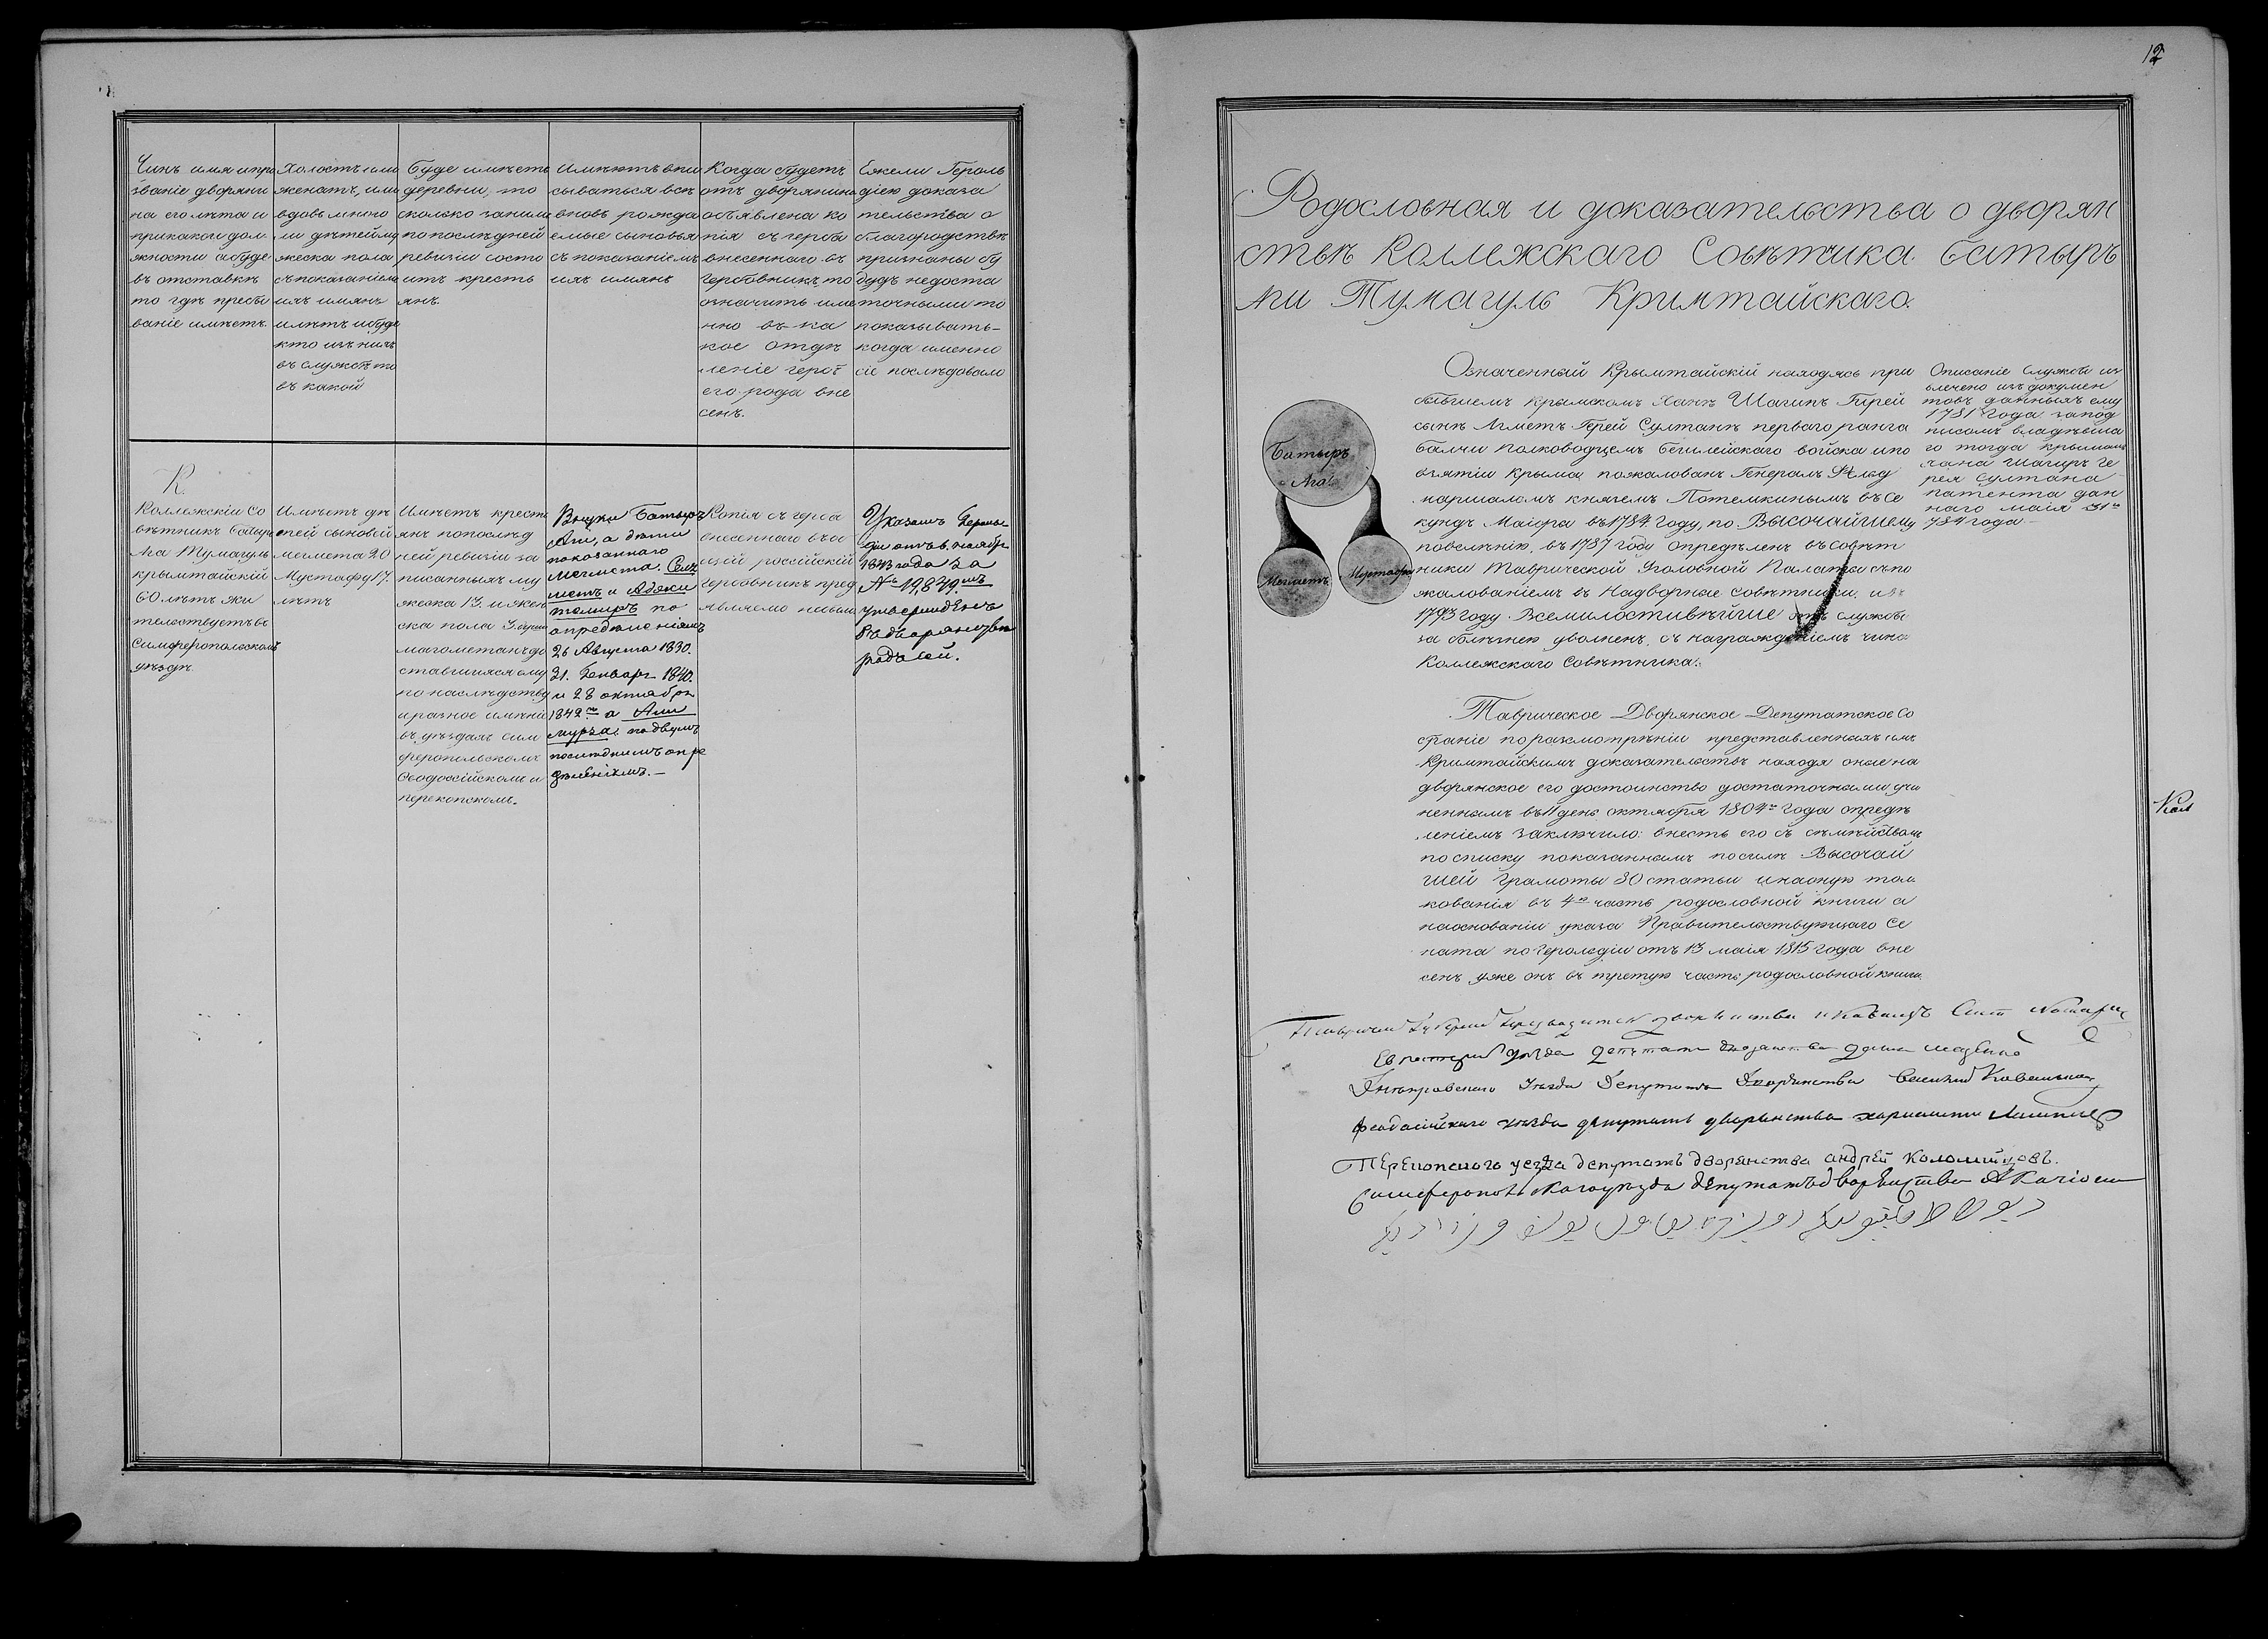 Чинъ имя и про
званіе дворяни
на его лѣта и
при какой дол
жности абуде
въ отставкѣ
то гдѣ пребы
ваніе имѣетъ.
Холостъ или
женатъ, или
вдовъ много
ли дѣтей му
жеска пола
съ показаніемъ
ихъ имянъ
и лѣтъ и буде
кто изъ нихъ
въ службѣ то
въ какой
Буде имѣетъ
деревни, то
сколько за ними
по послѣдней
ревизіи состо
итъ кресть
янъ.
Имѣютъ впи
сываться всѣ
вновь рожда
емые сыновья
съ показаніемъ
ихъ имянъ
Когда будетъ
отъ дворянина
объявлена ко
пія съ герба
внесеннаго въ
гербовникъ, то
означить име
нно въ ка
кое отдѣ
леніе гербъ
его рода вне
сенъ.
Ежели Героль
діею доказа
тельства о
благородствѣ
признаны бу
дуть недоста
точными то
показывать
когда именно
сіе послѣдовало
К.
Коллежскій Со
вѣтникъ Батырь
Ага Тумагуль
крымтайскій
60 лѣтъ жи
тельствуетъ въ
Симферопольскомъ
уѣздѣ.
Имѣетъ дѣ
тей сыновей
Мегмета 20
Мустафу 17.
лѣтъ
Имѣетъ кресть
янъ по послѣд
ней ревизіи за
писанныхъ му
жеска 13. и жен
ска пола 3. души
магометанъ до
ставшихся ему
по наслѣдству
и разное имѣніе
въ уѣздахъ Сим
феропольскомъ
Ѳеодосійскомъ и
перекопскомъ.
Внуки Батырь
Аги, а дѣти
показаннаго
Мегмета. Сел
метъ и Абдяки
темиръ по
опредѣленіямъ
26 Августа 1830.
31. Генваря 1840.
и 28 октября
1842 а Али
мурза, по двумъ
послѣднимъ опре
дѣленіямъ.
Копія съ герба
внесеннаго въ об
щій россійскій
гербовникъ пред
явлено небыло
Указомъ Героль
діи отъ 8. ноября
1843 года за
№ 19,879.мъ
утвержденъ
въ дворянствѣ
родъ сей.
12
Родословная и доказательства о дворян
ствѣ Коллежскаго Совѣтника Батырь
Аги Тумагуль Кримтайскаго.
Батырь
Ага
Мегметъ
Мустафа
Означенный Крымтайскій находясь при
бывшемъ Крымскомъ Ханѣ Шагинъ Гирей
сынѣ Агметъ Герей Султанѣ перваго ранга
балчи полководцемъ Бегилейскаго войска и по
взятіи Крыма пожалованъ Генералъ Фелд
маршаломъ княземъ Потемкинымъ въ Се
кундъ Маіора въ 1784. году, по Высочайшему
повелѣнію, въ 1787 году опредѣленъ въ Совѣт
ники Таврической Уголовной Палаты съ по
жалованіемъ въ Надворные Совѣтники, и въ
1793 году Всемилостивѣйше отъ службы
за болѣзнею уволненъ, съ награжденіемъ чина
Коллежскаго Совѣтника.
Описаніе Службы из
влечено изъ докумен
товъ данныхъ ему
1781 года за под
писомъ владѣвша
го тогда крымомъ
хана Шагиръ Ге
рея Султана
патента дан
наго маія 31го
784 года.
Таврическое Дворянское Депутатское Со
браніе по разсмотрѣніи представленныхъ имъ
Кримтайскимъ доказательствъ находя оные на
дворянское его достоинство достаточными учи
неннымъ въ 11 день октября 1804го года опредѣ
леніемъ заключило: внесть его съ семѣйствомъ
по списку показаннымъ по силѣ Высочай
шей Грамоты 80 статьи и на оную тол
кованія въ 4ю часть родословной книги а
на основаніи указа Правительствующаго Се
ната по Герольдіи отъ 13 маія 1815 года вне
сенъ уже онъ въ третую часть родословной книги.
Днѣпровскаго Уѣзда Депутатъ Дворянства
Феодосійскаго уѣзда депутатъ дворянства
Перекопскаго уезда депутатъ дворянства андрей Коломийцовъ.
Симферопольскаго уезда депутатъ дворянства